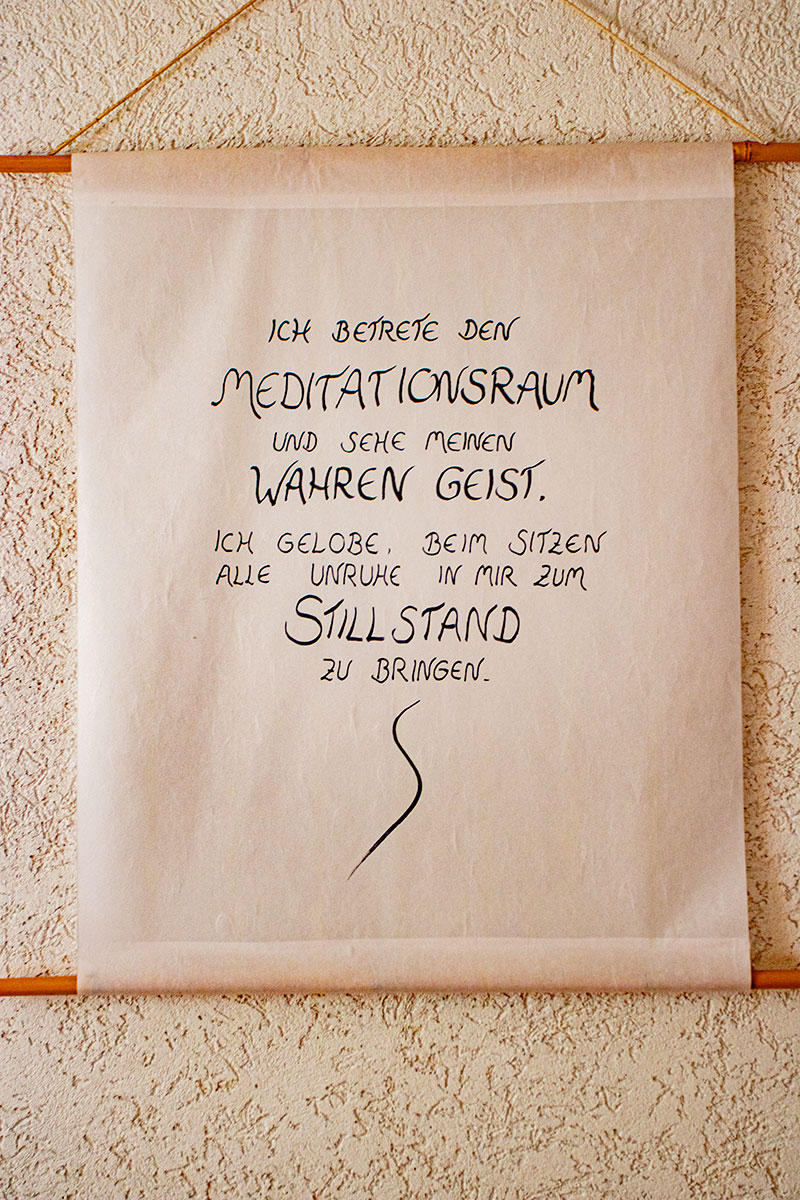 ICH BETRETE DEN
MEDITATIONSRAUM
UND SEHE MEINEN
WAHREN GEIST.
ICH GELOBE, BEIM SITZEN
ALLE UNRUHE IN MIR ZUM
STILLSTAND
ZU BRINGEN.